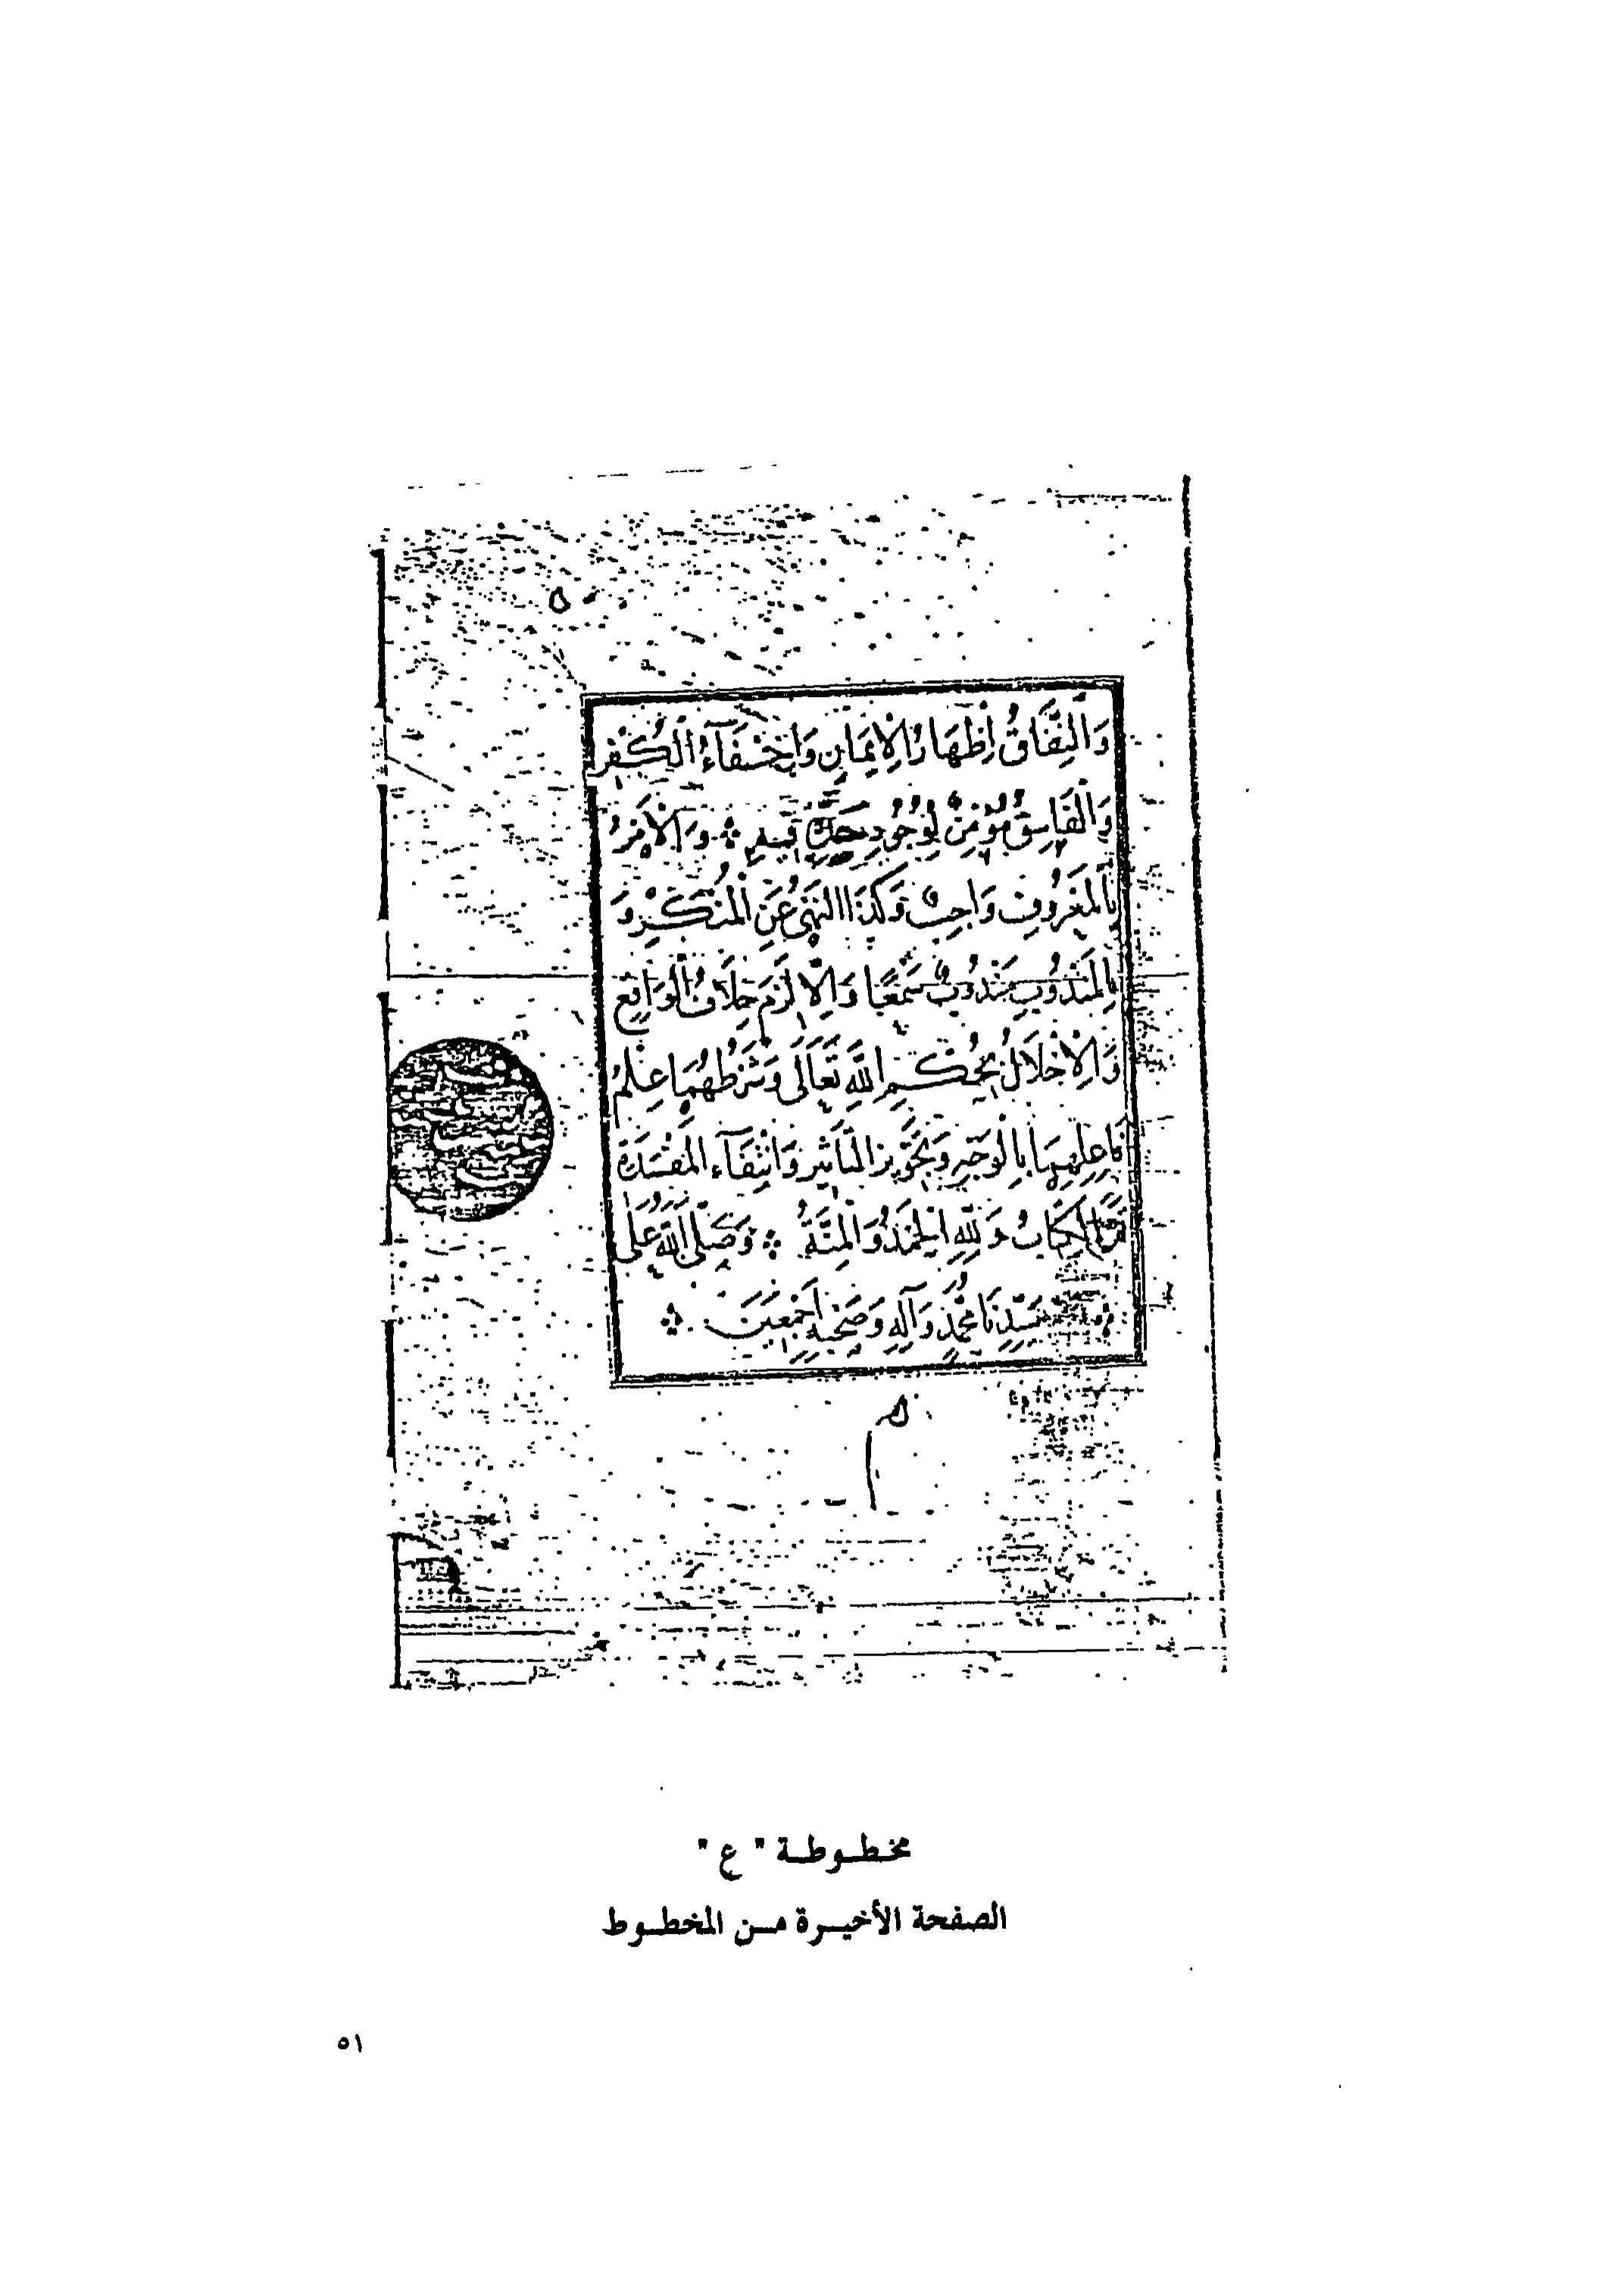 وَالنِّفَاقُ إِظْهَارُ الْإِيمَانِ وَإِخْفَاءُ الْكُفْرِ
وَالْفَاسِقُ مُؤْمِنٌ لِوُجُودِ حَدِّهِ فِيهِ ؞ وَالْأَمْرُ
بِالْمَعْرُوفِ وَاجِبٌ وَكَذَا النَّهْيُ عَنِ الْمُنْكَرِ وَ
بِالْمَنْدُوبِ مَنْدُوبٌ سَمْعًا وَإِلَّا لَزِمَ خِلَافُ الْوَاقِعِ
وَالْإِخْلَالُ بِحُكْمِ اللَّهِ تَعَالَى وَشَرْطُهُمَا عِلْمُ
فَاعِلِهِمَا بِالْوَجْهِ وَتَجْوِيزُ التَّأْثِيرِ وَانْتِفَاءُ الْمَفْسَدَةِ
الْكِتَابُ وَلِلَّهِ الْحَمْدُ وَالْمِنَّةُ ؞ وَصَلَّى اللَّهُ عَلَى
سَيِّدِنَا مُحَمَّدٍ وَآلِهِ وَصَحْبِهِ أَجْمَعِينَ ؞
مخطوطة " ع "
الصفحة الأخيرة من المخطوط
٥١